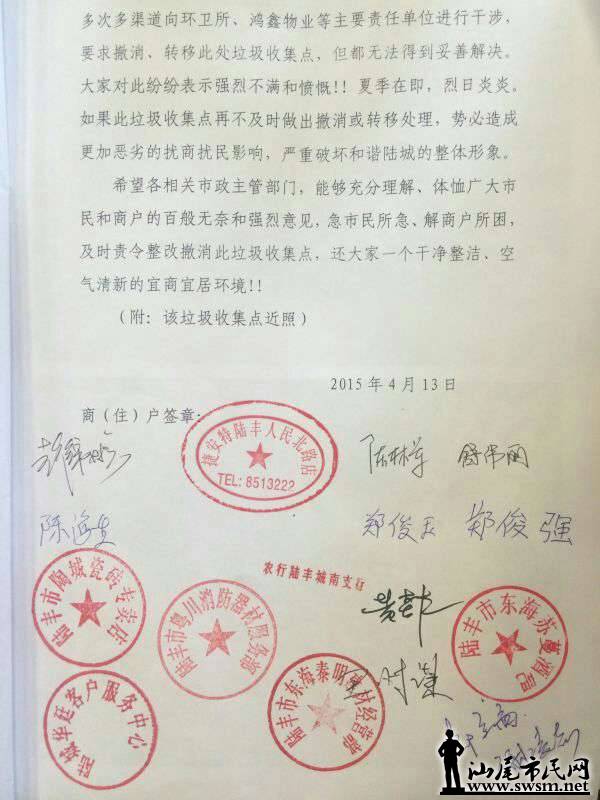 多次多渠道向环卫所、鸿鑫物业等主要责任单位进行干涉，
要求撤消、转移此处垃圾收集点，但都无法得到妥善解决。
大家对此纷纷表示强烈不满和愤慨!! 夏季在即，烈日炎炎。
如果此垃圾收集点再不及时做出撤消或转移处理，势必造成
更加恶劣的扰商扰民影响，严重破坏和谐陆城的整体形象。
希望各相关市政主管部门，能够充分理解、体恤广大市
民和商户的百般无奈和强烈意见，急市民所急、解商户所困，
及时责令整改撤消此垃圾收集点，还大家一个干净整洁、空
气清新的宜商宜居环境!!
（附：该垃圾收集点近照）
2015 年 4 月 13 日
商（住）户签章：
捷安特陆丰人民北路店
TEL: 8513222
陈林军
郑俊玉 郑俊强
农行陆丰城南支行
陆丰市陶城瓷砖专卖店
陆丰市粤川消防器材服务部
陆丰市东海泰明建材经营部
陆丰市东海苏蔓酒吧
陆鑫华庭客户服务中心
汕尾市民网
www.swsm.net